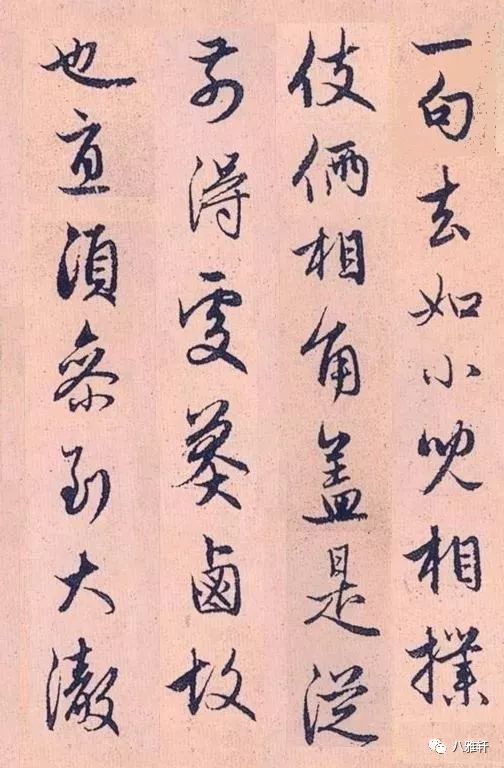 一句去如小兒相撲
伎倆相角蓋是從
前得處莽鹵故
也直須參到大澈
八雅轩